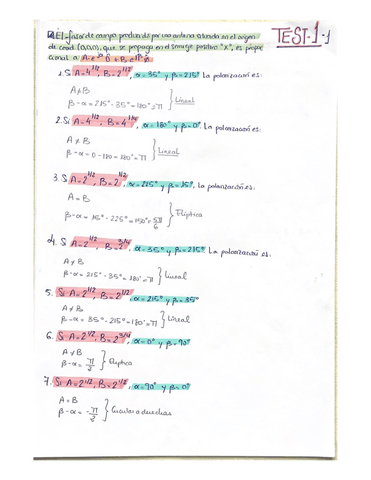 TEST-1-1
El fasor de campo producido por una antena situada en el origen
de coord (0,0,0), que se propaga en el semieje positivo "X", es propor
cional a
1. Si A=4^1/2, B=2^1/2, α=35° y β=215° La polarización es:
A≠B
β-α=215°-35°=180°=π } Lineal
2. Si A=4^1/2, B=4^1/4, α=180° y β=0°. La polarización es:
A≠B
β-α=0-180=180°=π } Lineal
3. Si A=2^1/2, B=2^1/2, α=225° y β=75°. La polarización es:
A=B
} Elíptica
4. Si A=2^1/2, B=2^3/4, α=35° y β=215° La polarización es.
A≠B
β-α=215°-35°=180°=π } Lineal
5. Si A=2^1/2, B=2^1/2, α=215° y β=35°
A≠B
β-α=35°-215°=180°=π } Lineal
6. Si A=2^1/2, B=2^3/4, α=0° y β=90°
A≠B
β-α=π/2 } Elíptica
7. Si A=2^1/2, B=2^1/2, α=90° y β=0°
A=B
β-α=-π/2 } Circular a derechas